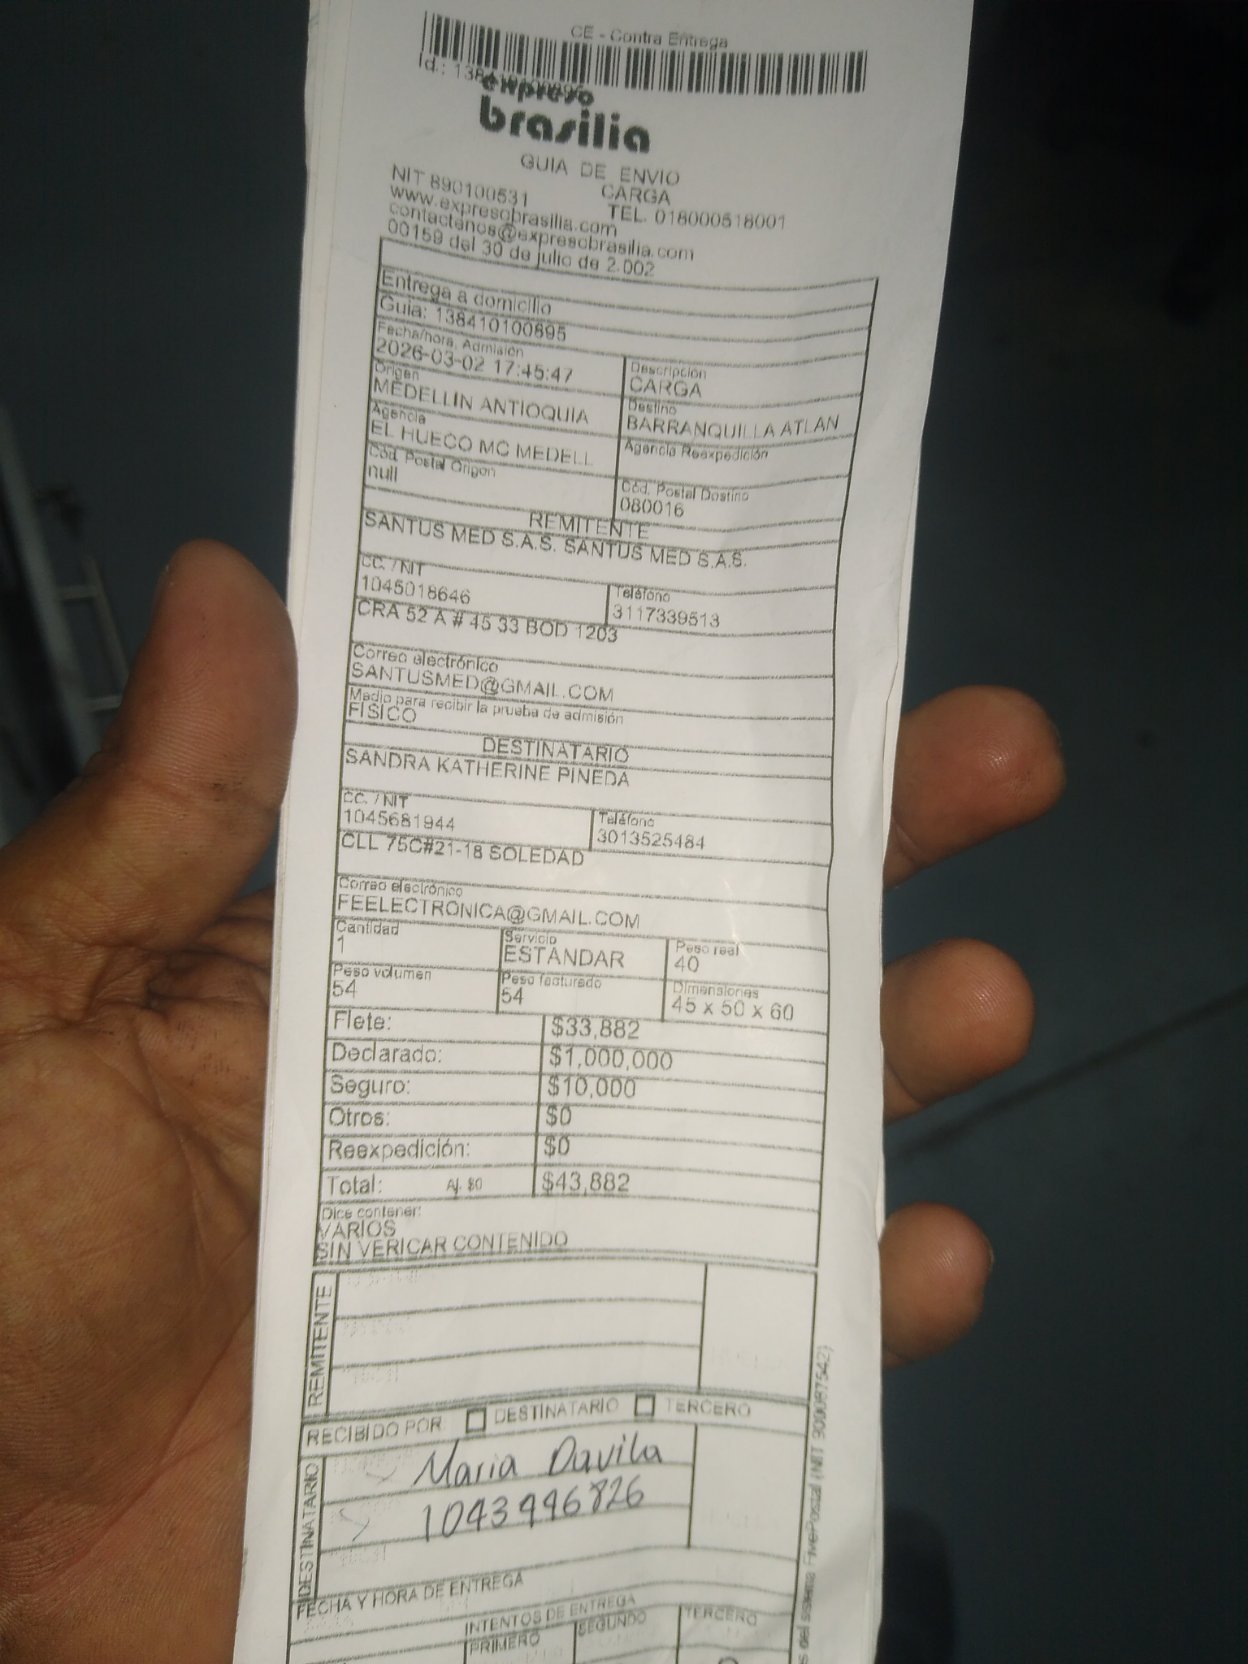 CE - Contra Entrega
Id.:
expreso
brasilia
GUIA DE ENVIO
CARGA
NIT 890100531
TEL. 018000518001
www.expresobrasilia.com
contactenos@expresobrasilia.com
00159 del 30 de julio de 2.002
Entrega a domicilio
Guia: 138410100895
Fecha/hora, Admisión
2026-03-02 17:45:47
Descripción
CARGA
Origen
MEDELLIN ANTIOQUIA
Destino
BARRANQUILLA ATLAN
Agencia
EL HUECO MC MEDELL
Agencia Reexpedición
Cód. Postal Origen
null
Cód. Postal Destino
080016
REMITENTE
SANTUS MED S.A.S. SANTUS MED S.A.S.
CC. / NIT
1045018646
Teléfono
3117339513
CRA 52 A # 45 33 BOD 1203
Correo electrónico
SANTUSMED@GMAIL.COM
Medio para recibir la prueba de admisión
FISICO
DESTINATARIO
SANDRA KATHERINE PINEDA
CC. / NIT
1045681944
Teléfono
3013525484
CLL 75C#21-18 SOLEDAD
Correo electrónico
FEELECTRONICA@GMAIL.COM
Cantidad
1
Servicio
ESTANDAR
Peso real
40
Peso volumen
54
Peso facturado
54
Dimensiones
45 x 50 x 60
Flete: $33,882
Declarado: $1,000,000
Seguro: $10,000
Otros: $0
Reexpedición: $0
Total: Aj. $0 $43,882
Dice contener:
VARIOS
SIN VERICAR CONTENIDO
REMITENTE
RECIBIDO POR DESTINATARIO TERCERO
DESTINATARIO
Maria Davila
1043446826
FECHA Y HORA DE ENTREGA
INTENTOS DE ENTREGA
PRIMERO SEGUNDO TERCERO
del sistema FivePostal (NIT 900087542)